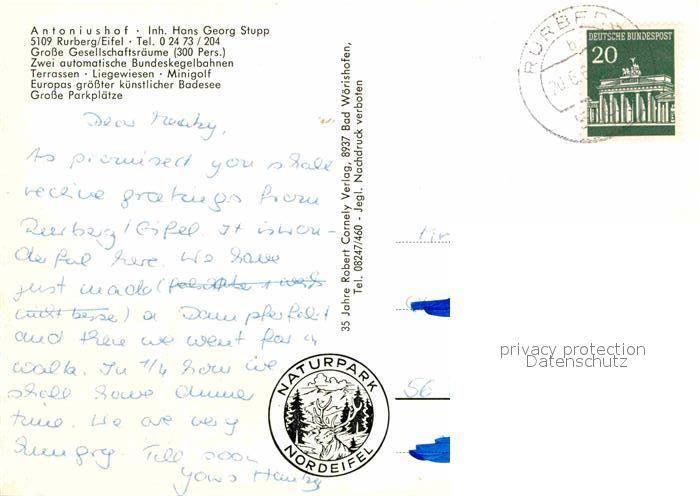 Antoniushof · Inh. Hans Georg Stupp
5109 Rurberg/Eifel · Tel. 0 24 73 / 204
Große Gesellschaftsräume (300 Pers.)
Zwei automatische Bundeskegelbahnen
Terrassen · Liegewiesen · Minigolf
Europas größter künstlicher Badesee
Große Parkplätze
Dear
As promised you shall
receive greetings from
Rurberg/Eifel. It is won-
derful here. We have
just made (
nicht besser) a Dampferfahrt
and then we went for a
walk. In 1/4 hour we
shall have dinner
time. We are very
hungry. Till soon
Yours
35 Jahre Robert Cornely Verlag, 8937 Bad Wörishofen,
Tel. 08247/460 - Jegl. Nachdruck verboten
NATURPARK
NORDEIFEL
RURBERG
b
20.6.
DEUTSCHE BUNDESPOST
20
56
privacy protection
Datenschutz